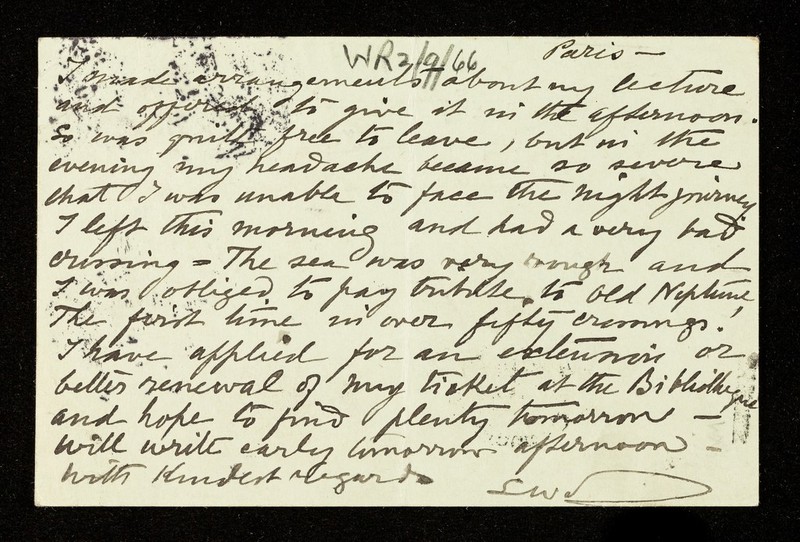 WR2/9/66
Paris —
I made arrangements about my lecture
and offered to give it in the afternoon.
So was quite free to leave, but in the
evening my headache became so severe
that I was unable to face the night journey
I left this morning and had a very bad
crossing = The sea was very rough and
I was obliged to pay tribute to old Neptune,
The first time in over fifty crossings.
I have applied for an extension or
better renewal of my ticket at the Bibliotheque
and hope to find plenty tomorrow —
Will write early tomorrow afternoon —
With Kindest regards